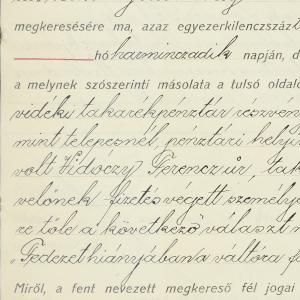 megkeresésére ma, azaz egyezerkilenczszázt
hó harminczadik napján, d
a melynek szószerinti másolata a tulsó oldalo
vidéki takarékpénztár részvén
mint telepesnél, pénztári helyis
volt Vidoczy Ferencz úr, tak
velőnek fizetés végett személye
re tőle a következő választ n
„Fedezet hiányában a váltóra f
Miről, a fent nevezett megkereső fél jogai